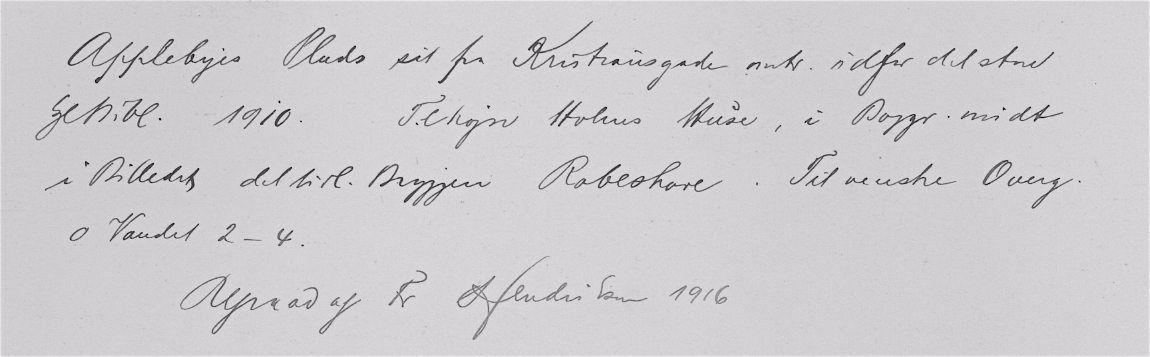 Applebyes Plads set fra Kristiansgade omtr. udfor det store
1910. Til højre Holms Huse, i Baggr. midt
i Billedet det tidl. Bryggeri Rabeshave. Til venstre Overg.
o Vandet 2-4.
af Fr Hendriksen 1916